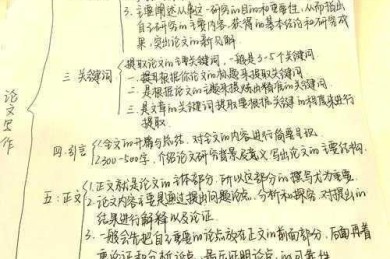 3. 主要阐述从事这一研究的目的和重要性，从而指出
自己研究的主要内容，获得的基本结论和研究成
果，突出论文的新见解.
三. 关键词
提取论文的主要关键词，一般是3-5个关键词
一. 提取根据你论文的标题来提取关键词
二. 是根据论文的主题来提炼出精准的关键词
三. 是文章的关键词提取要根据关键的程度来进行
提取.
论文写作
四. 引言
1. 全文的开篇与总括，对全文的内容进行简要
2. 300-500字，介绍论文研究背景及意义写出论文的主要结构.
五: 正文
1. 正文就是论文的主体部分，所以这部分的撰写尤为重要.
2. 论文内容主要是通过提出问题论点，分析和探究，对提出的
结果进行解释以及论证.
3. 一般会先把自己重要的论点放在正文的前面部分，后面再着
重论证和分析论点，最后证明论点的可靠性